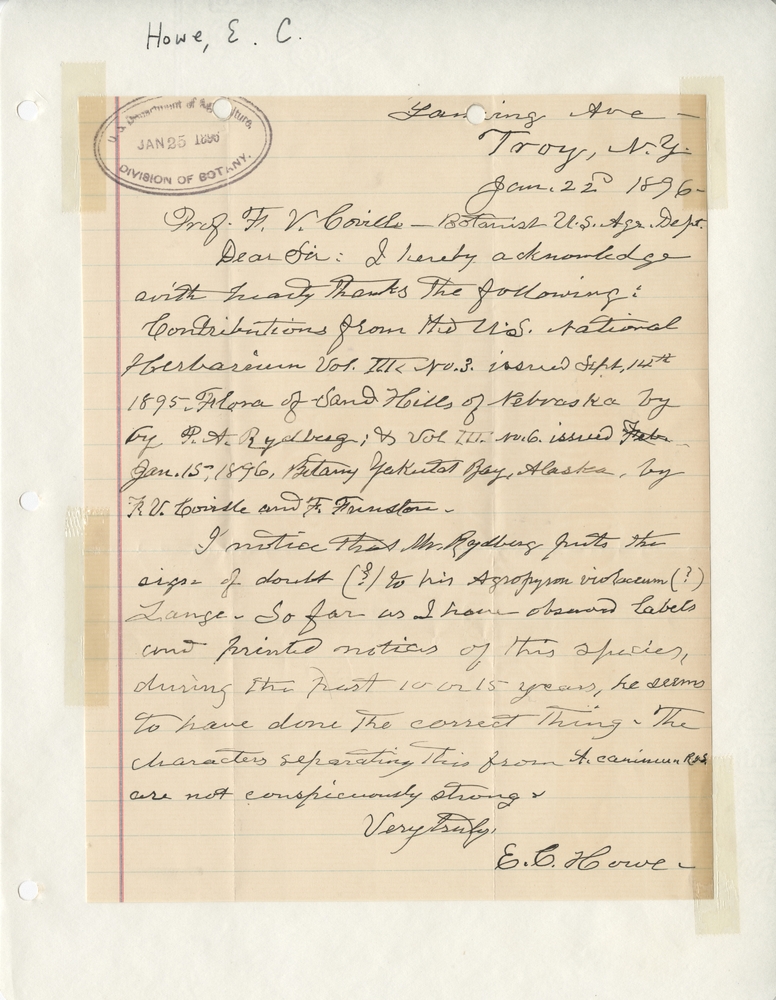 Howe, E. C.
U.S. Department of Agriculture,
JAN 25 1896
DIVISION OF BOTANY.
Lansing Ave -
Troy, N.Y.
Jan. 22d 1896-
Prof. F. V. Coville - Botanist U.S. Agr. Dept.
Dear Sir: I hereby acknowledge
with hearty thanks the following:
Contributions from the U.S. National
Herbarium Vol. III No. 3. issued Sept. 14th
1895. Flora of Sand Hills of Nebraska by
by P. A. Rydberg; & Vol III. No. 6. issued Feb.
Jan. 15, 1896, Botany Yakutat Bay, Alaska, by
F. V. Coville and F. Funston.
I notice that Mr. Rydberg puts the
sign of doubt (?) to his Agropyron violaceum (?)
Lange. So far as I have observed labels
and printed notices of this species,
during the past 10 or 15 years, he seems
to have done the correct thing. The
characters separating this from A. caninum R&S
are not conspicuously strong.
Very truly,
E. C. Howe-